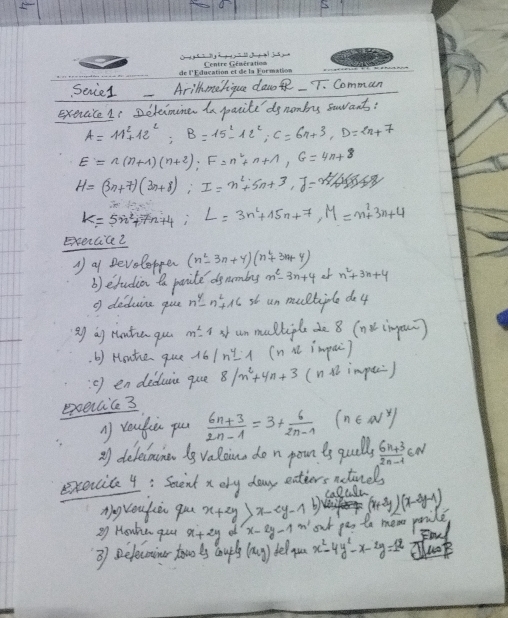 مركز أجيال للتربية والتكوين
Centre Génération
de l'Education et de la Formation
Serie 1 _ Arithmétique dans _ T. Commun
Exercice 1 : Déterminer la parité ds nombrs suivant :
A = 11²+12² ; B = 15²-12² ; C = 6n+3, D = 2n+7
E = n(n+1)(n+2) ; F = n²+n+1, G = 4n+8
H = (3n+7)(3n+8) ; I = n²+5n+3, J =
K = 5n²+7n+4 ; L = 3n²+15n+7, M = n²+3n+4
Exercice 2
1) a) Developper (n²-3n+4)(n²+3n+4)
b) étudier la parité ds nombrs n²-3n+4 et n²+3n+4
c) déduire que n⁴-n²+16 st un multiple de 4
2) a) Montrer que n²-1 st un multiple de 8 (n st impair)
b) Montrer que 16/n⁴-1 (n st impair)
c) en déduire que 8/n²+4n+3 (n st impair)
Exercice 3
1) Verifier que 6n+3/2n-1 = 3+ 6/2n-1 (n ∈ IN*)
2) déterminer ls valeurs de n pour ls quells 6n+3/2n-1 ∈ IN
Exercice 4 : Soient x et y deux entiers naturels
1) a) Verifier que x+2y > x-2y-1 b) calculer (x+2y)(x-2y-1)
2) Montrer que x+2y et x-2y-1 n'ont pas la meme parité
3) Déterminer tous ls couple (x,y) tel que x²-4y²-x-2y=12